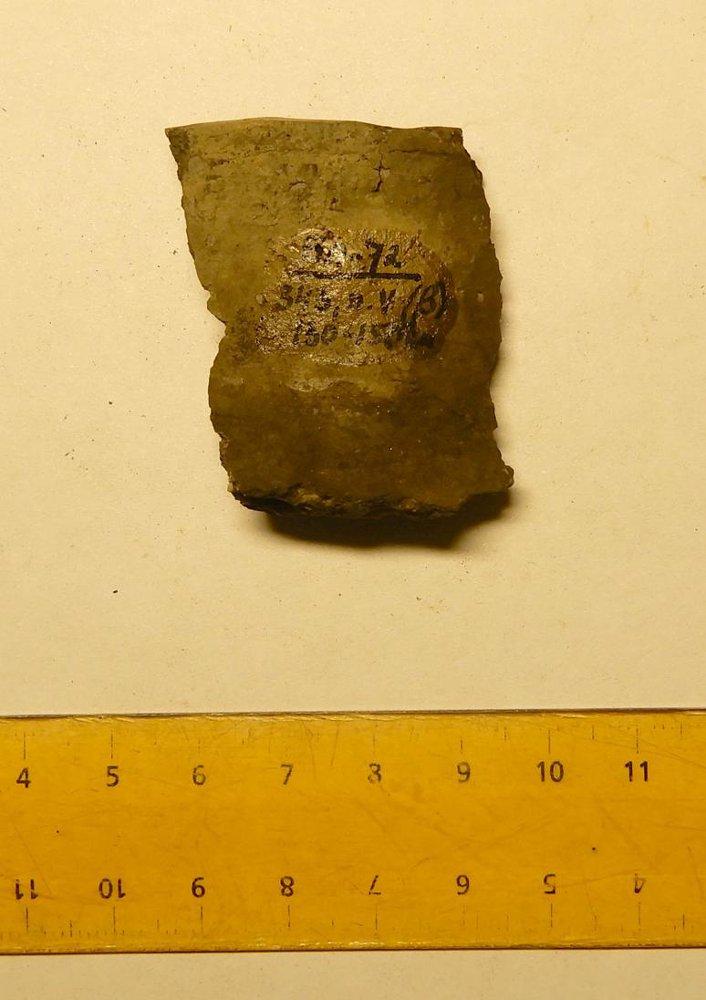 -72
345, п. V (Б)
130-150
4 5 6 7 8 9 10 11
11 10 9 8 7 6 5 4